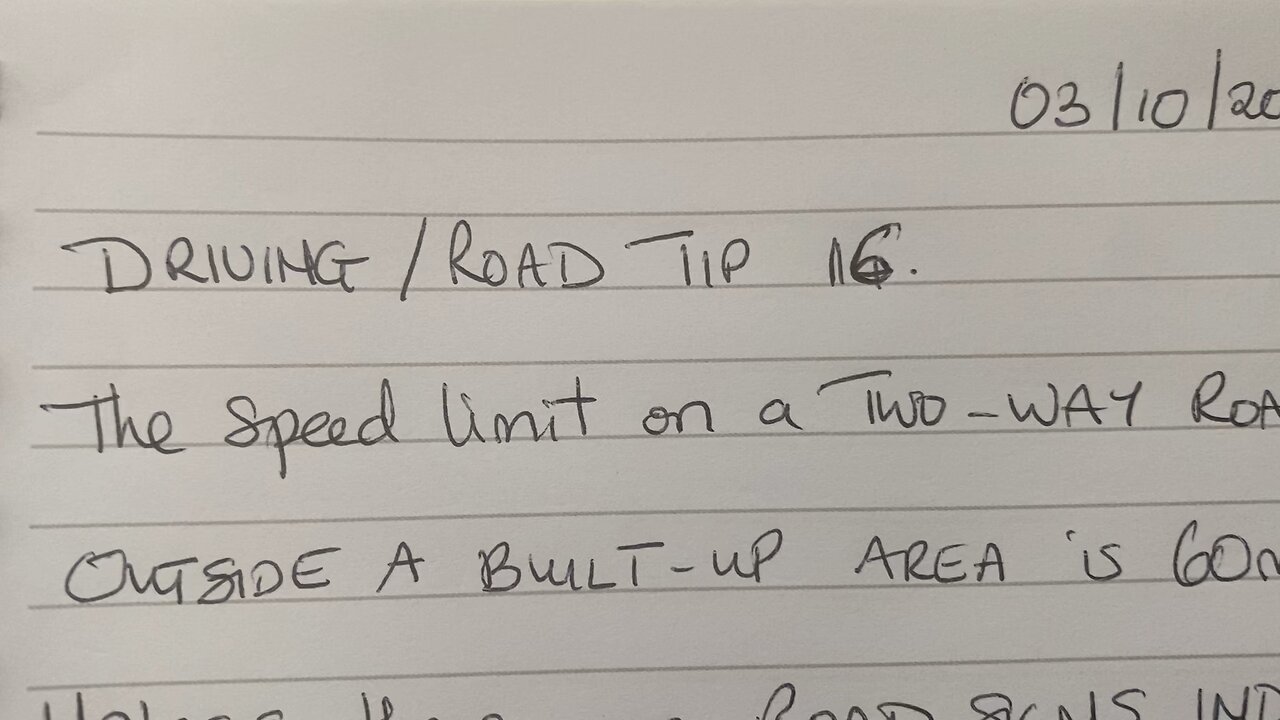 03/10/20
DRIVING/ROAD TIP 16.
The Speed limit on a TWO-WAY ROA
OUTSIDE A BUILT-UP AREA is 60m
ROAD SIGNS IND